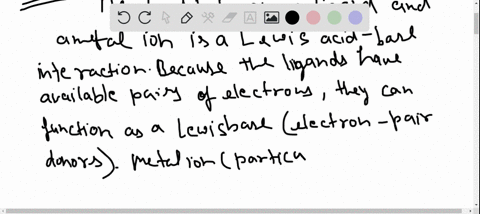 and
a metal ion is a Lewis acid-base
interaction. Because the ligands have
available pairs of electrons, they can
function as a Lewis base (electron-pair
donors). Metal ion (particu